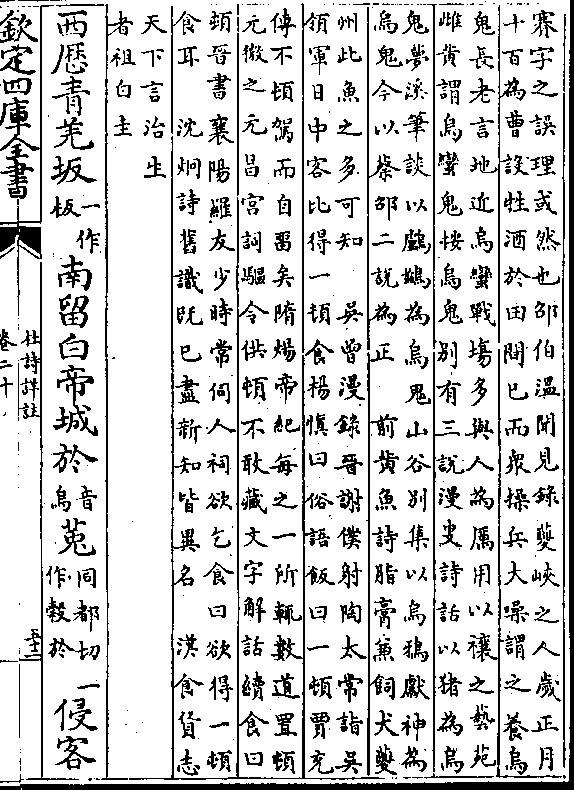 賽字之誤理或然也邵伯溫聞見錄夔峽之人歲正月
十百為曹設牲酒於田間已而衆操兵大噪謂之養烏
鬼長老言地近烏蠻戰塲多與人為厲用以禳之藝苑
雌黄謂烏蠻鬼悞烏鬼别有三說漫叟詩話以猪為烏
鬼夢溪筆談以鸕鷀為烏鬼山谷别集以烏鴉獻神為
烏鬼今以蔡邵二說為正　前黄魚詩脂膏兼飼犬夔
州此魚之多可知　吳曾漫錄晋謝僕射陶太常詣吳
領軍日中客比得一頓食楊慎曰俗語飯曰一頓賈充
傳不頓駕而自留矣隋煬帝紀每之一所輒數道置頓
元微之元昌宫詞驅令供頓不敢藏文字解詁續食曰
頓晉書襄陽羅友少時常伺人祠欲乞食曰欲得一頓
食耳　沈炯詩舊識旣已盡新知皆異名　漢食貨志
天下言治生
者祖白圭
西歴青羌坂一作板南留白帝城於音烏菟同都切作㝅於一侵客
欽定四庫全書
杜詩詳註
卷二十
五十三